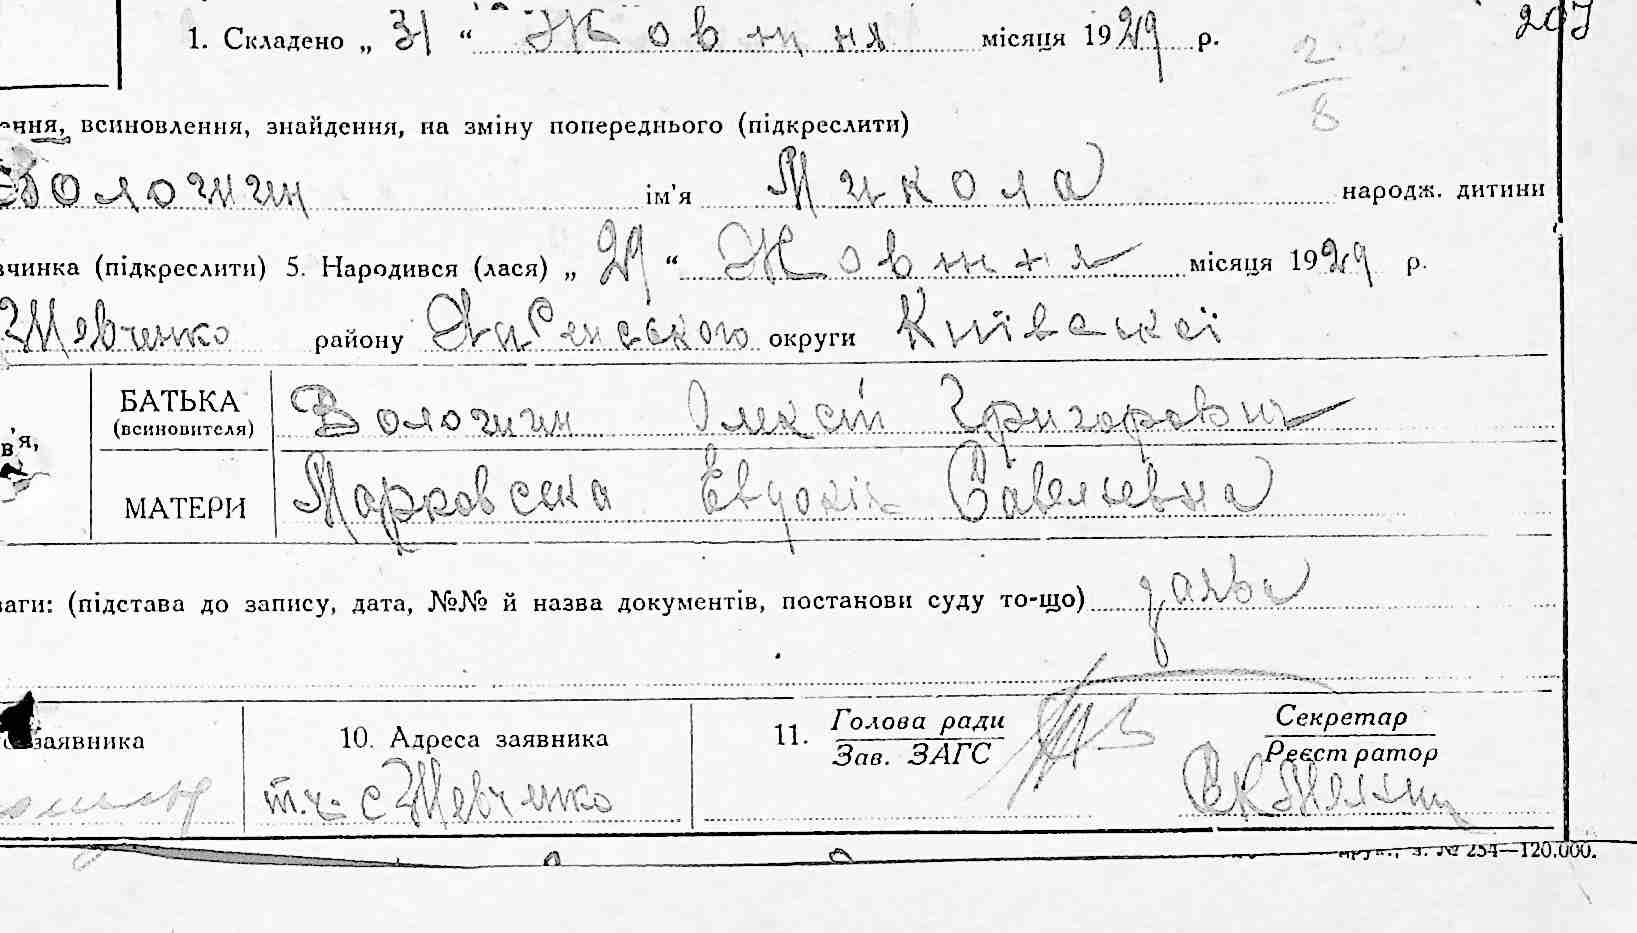 207
1. Складено „ 31 “ Жовтня місяця 1929 р.
2/8
ння, всиновлення, знайдення, на зміну попереднього (підкреслити)
Вологжин ім’я Микола народж. дитини
вчинка (підкреслити) 5. Народився (лася) „ 29 “ Жовтня місяця 1929 р.
Шевченко району округи Київської
БАТЬКА Вологжин Олексій Григорович
(всиновителя)
в’я,
МАТЕРИ Марковська Евдокія Савельевна
ваги: (підстава до запису, дата, №№ й назва документів, постанови суду то-що) заява
заявника
10. Адреса заявника
11. Голова ради
Зав. ЗАГС
Секретар
Реєстратор
с Шевченко
№ 254—120.000.